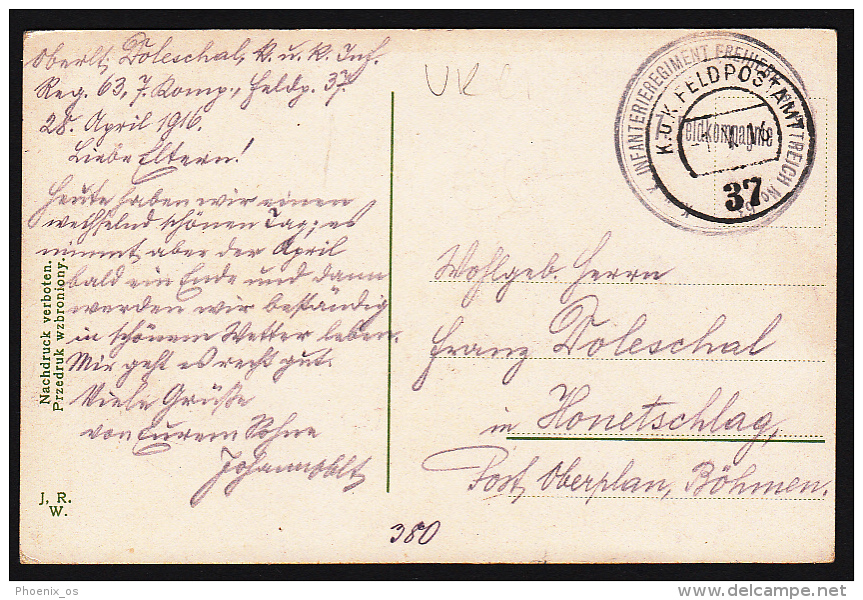 Oberlt. Doleschal, K. u. K. Inf.
Reg. 63, 7. Komp., Feldp. 37.
28. April 1916.
Liebe Eltern!
Heute haben wir einen
wechselnd schönen Tag; es
nimmt aber der April
bald ein Ende und dann
werden wir beständig
in schönem Wetter leben.
Mir geht es recht gut.
Viele Grüße
von Eurem Sohne
Johann
Nachdruck verboten.
Przedruk wzbroniony.
J. R.
W.
380
UK
INFANTERIEREGIMENT FREIHERR
Feldkompagnie
K.U.K. FELDPOSTAMT
37
Wohlgeb. Herrn
Franz Doleschal
in Honetschlag,
Post Oberplan, Böhmen.
Phoenix_os
delcampe.net